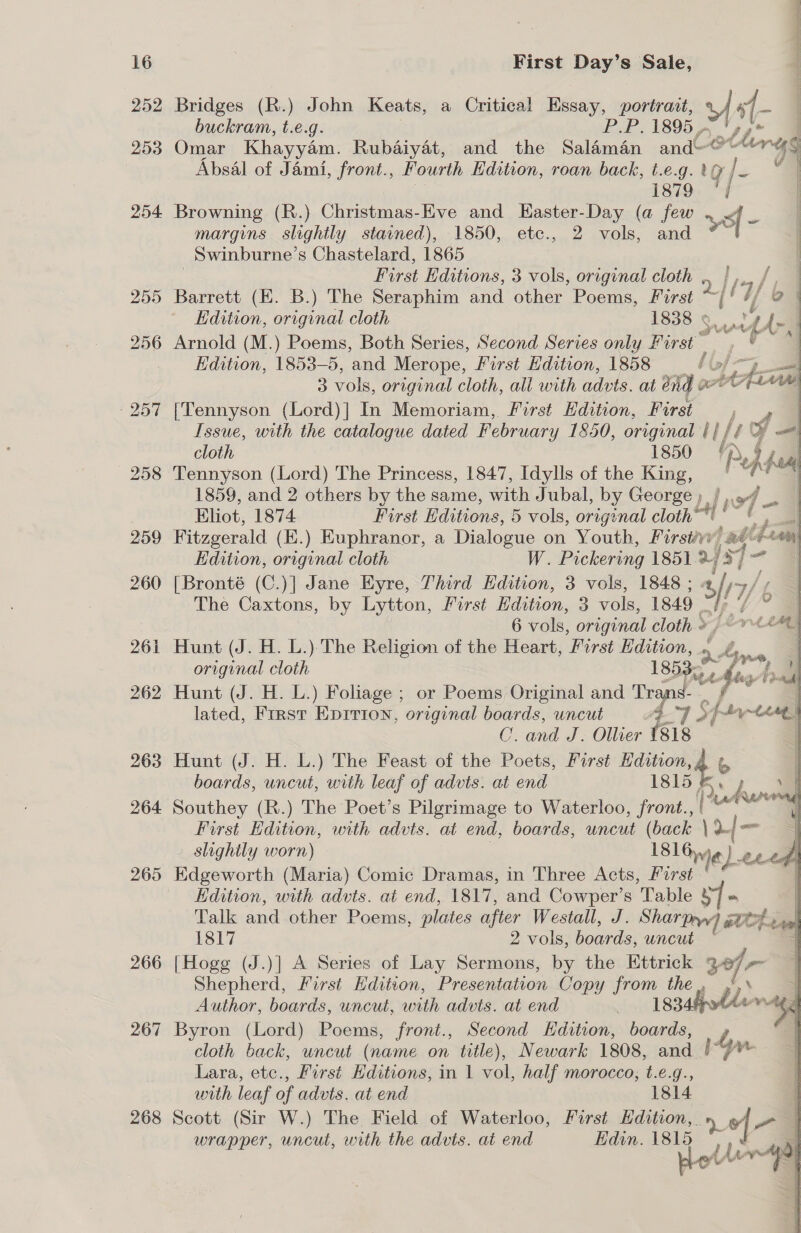 16 First Day's Sale,
252 Bridges (R.) John Keats, a Critical Essay, portrait,
buckram, t.e.g. P.P. 1895
253 Omar Khayyám. Rubáiyát, and the Salámán and
Absál of Jámi, front., Fourth Edition, roan back, t.e.g.
1879
254 Browning (R.) Christmas-Eve and Easter-Day (a few
margins slightly stained), 1850, etc., 2 vols, and
Swinburne's Chastelard, 1865
First Editions, 3 vols, original cloth
255 Barrett (E. B.) The Seraphim and other Poems, First
Edition, original cloth 1838
256 Arnold (M.) Poems, Both Series, Second Series only First
Edition, 1853-5, and Merope, First Edition, 1858
3 vols, original cloth, all with advts. at end
257 [Tennyson (Lord)] In Memoriam, First Edition, First
Issue, with the catalogue dated February 1850, original
cloth 1850
258 Tennyson (Lord) The Princess, 1847, Idylls of the King,
1859, and 2 others by the same, with Jubal, by George
Eliot, 1874 First Editions, 5 vols, original cloth
259 Fitzgerald (E.) Euphranor, a Dialogue on Youth, First
Edition, original cloth W. Pickering 1851
260 [Bronté (C.)] Jane Eyre, Third Edition, 3 vols, 1848 ;
The Caxtons, by Lytton, First Edition, 3 vols, 1849
6 vols, original cloth
261 Hunt (J. H. L.) The Religion of the Heart, First Edition,
original cloth 1853
262 Hunt (J. H. L.) Foliage ; or Poems Original and Trans-
lated, First Edition, original boards, uncut
C. and J. Ollier 1818
263 Hunt (J. H. L.) The Feast of the Poets, First Edition,
boards, uncut, with leaf of advts. at end 1815
264 Southey (R.) The Poet's Pilgrimage to Waterloo, front.,
First Edition, with advts. at end, boards, uncut (back
slightly worn) 1816
265 Edgeworth (Maria) Comic Dramas, in Three Acts, First
Edition, with advts. at end, 1817, and Cowper's Table
Talk and other Poems, plates after Westall, J. Sharpe
1817 2 vols, boards, uncut
266 [Hogg (J.)] A Series of Lay Sermons, by the Ettrick
Shepherd, First Edition, Presentation Copy from the
Author, boards, uncut, with advts. at end 1834
267 Byron (Lord) Poems, front., Second Edition, boards,
cloth back, uncut (name on title), Newark 1808, and
Lara, etc., First Editions, in 1 vol, half morocco, t.e.g.,
with leaf of advts. at end 1814
268 Scott (Sir W.) The Field of Waterloo, First Edition,
wrapper, uncut, with the advts. at end Edin. 1815